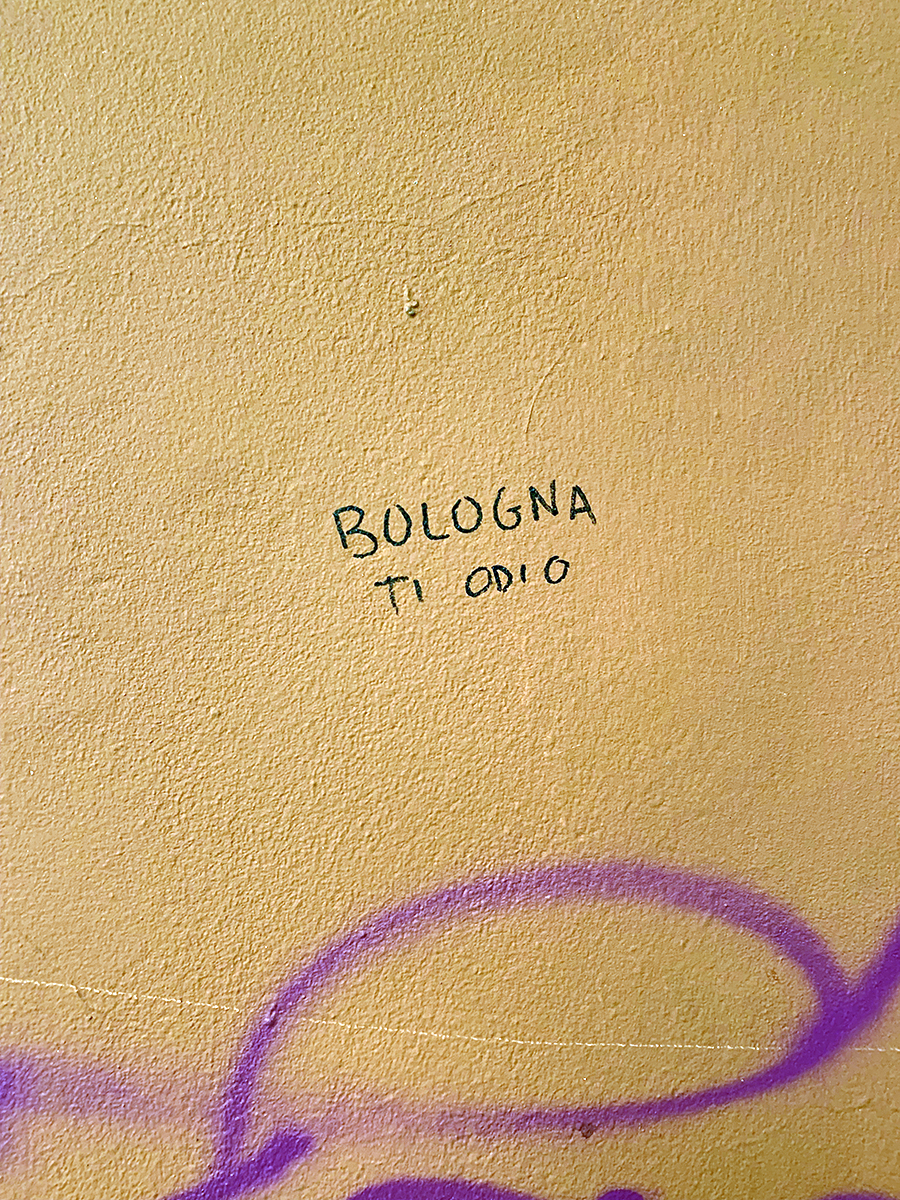 BOLOGNA
TI ODIO